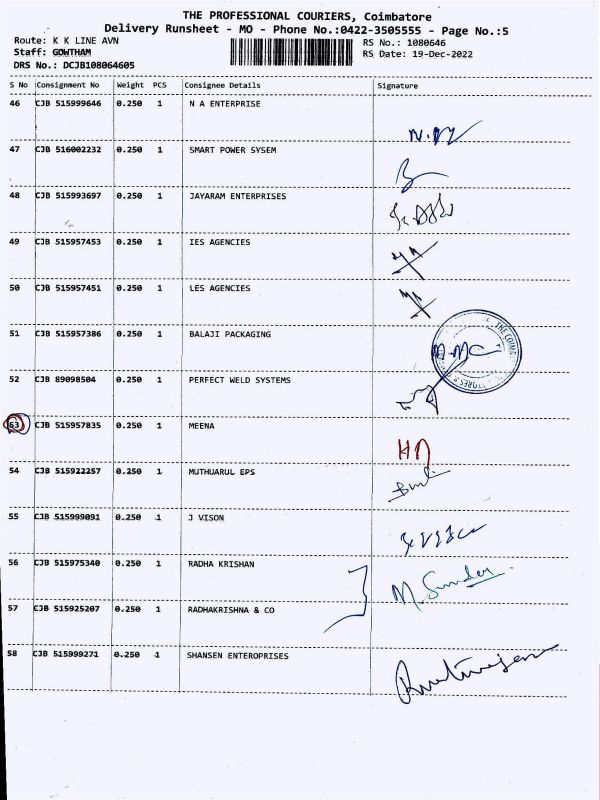 THE PROFESSIONAL COURIERS, Coimbatore
Delivery Runsheet - MO - Phone No.:0422-3505555 - Page No.:5
Route: K K LINE AVN RS No.: 1080646
Staff: GOWTHAM RS Date: 19-Dec-2022
DRS No.: DCJB108064605
S No Consignment No Weight PCS Consignee Details Signature
46 CJB 515999646 0.250 1 N A ENTERPRISE
47 CJB 516002232 0.250 1 SMART POWER SYSEM
48 CJB 515993697 0.250 1 JAYARAM ENTERPRISES
49 CJB 515957453 0.250 1 IES AGENCIES
50 CJB 515957451 0.250 1 LES AGENCIES
51 CJB 515957386 0.250 1 BALAJI PACKAGING
52 CJB 89098504 0.250 1 PERFECT WELD SYSTEMS
53 CJB 515957835 0.250 1 MEENA
54 CJB 515922257 0.250 1 MUTHUARUL EPS
55 CJB 515999091 0.250 1 J VISON
56 CJB 515975340 0.250 1 RADHA KRISHAN
M. Sunder
57 CJB 515925207 0.250 1 RADHAKRISHNA & CO
58 CJB 515999271 0.250 1 SHANSEN ENTEROPRISES